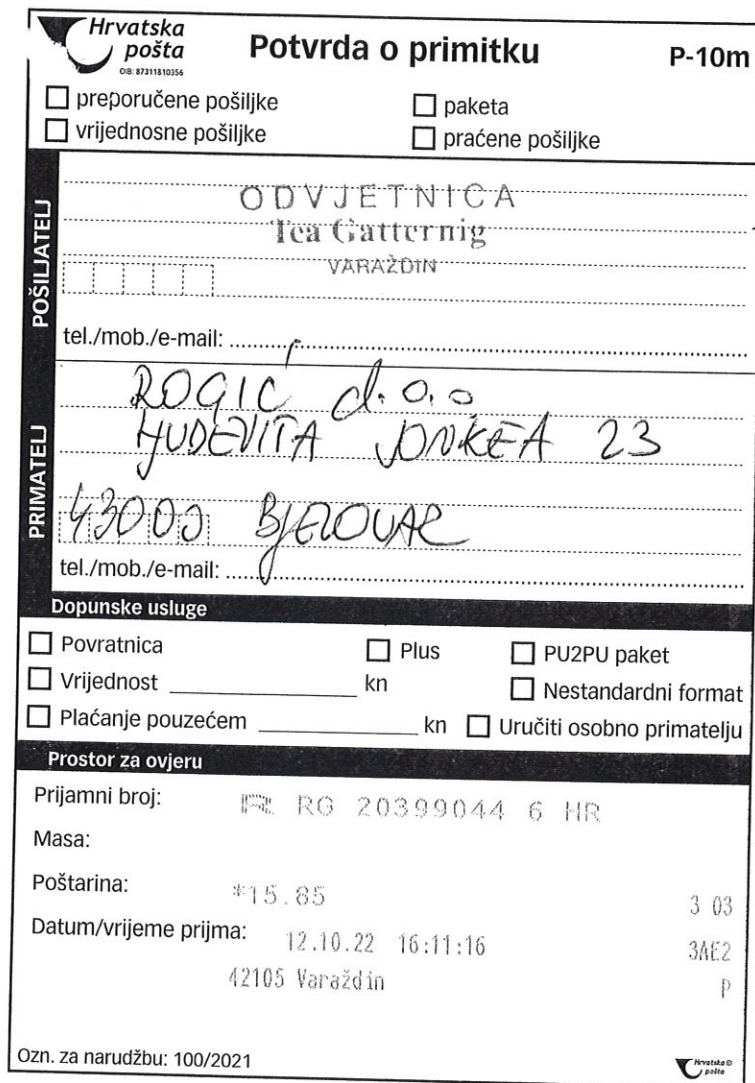 Hrvatska
pošta
OIB: 87311810356
Potvrda o primitku
P-10m
preporučene pošiljke
paketa
vrijednosne pošiljke
praćene pošiljke
POŠILJATELJ
ODVJETNICA
Tea Gatternig
VARAŽDIN
tel./mob./e-mail:
PRIMATELJ
ROGIĆ d.o.o
LJUDEVITA JONKEA 23
43000 BJELOVAR
tel./mob./e-mail:
Dopunske usluge
Povratnica
Plus
PU2PU paket
Vrijednost kn
Nestandardni format
Plaćanje pouzećem kn
Uručiti osobno primatelju
Prostor za ovjeru
Prijamni broj: R RG 20399044 6 HR
Masa:
Poštarina: *15.85
3 03
Datum/vrijeme prijma: 12.10.22 16:11:16
3AE2
42105 Varaždin
P
Ozn. za narudžbu: 100/2021
Hrvatska
pošta